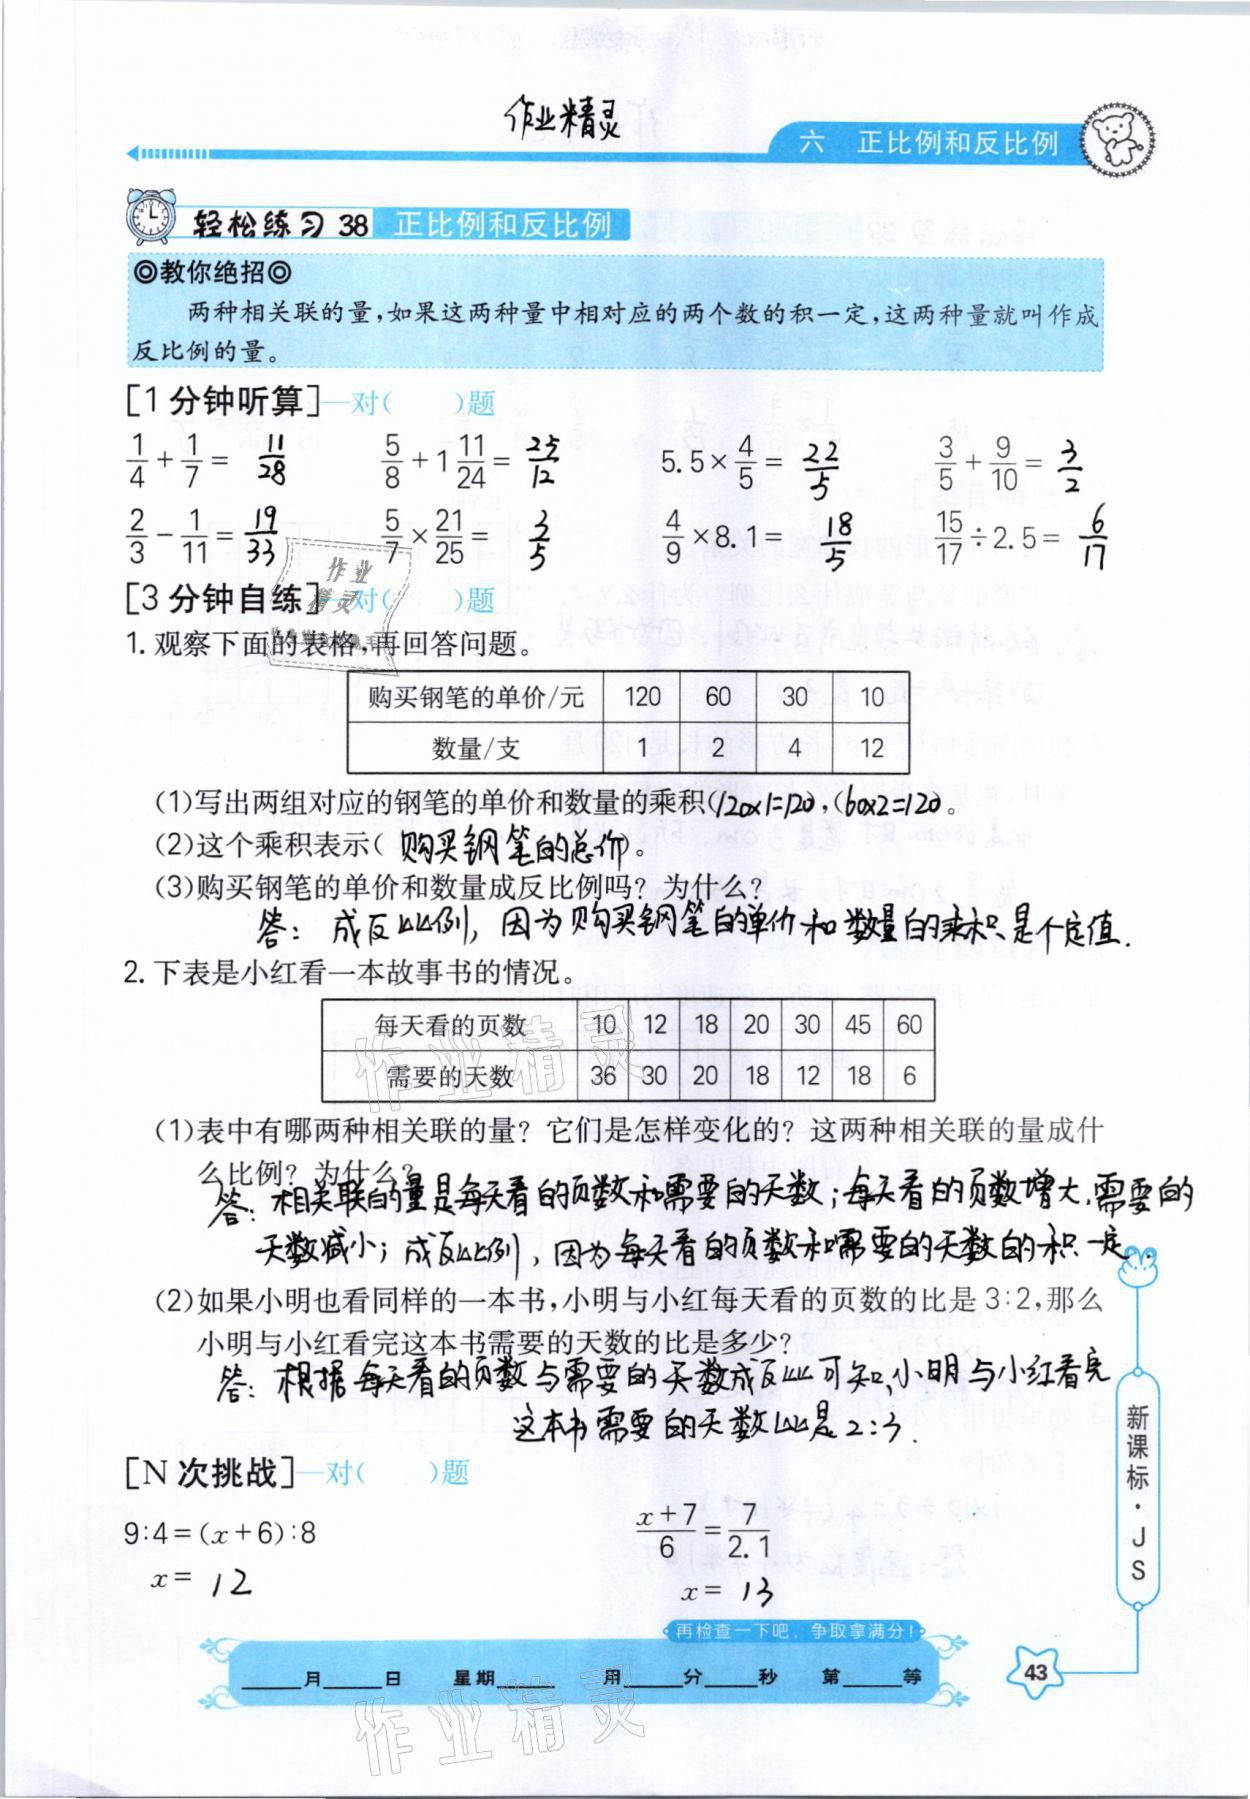 作业精灵
六 正比例和反比例
轻松练习 38 正比例和反比例
◎教你绝招◎
两种相关联的量,如果这两种量中相对应的两个数的积一定,这两种量就叫作成
反比例的量。
[1 分钟听算]—对( )题
1/4 + 1/7 = 11/28 5/8 + 1 11/24 = 25/12 5.5 × 4/5 = 22/5 3/5 + 9/10 = 3/2
2/3 − 1/11 = 19/33 5/7 × 21/25 = 3/5 4/9 × 8.1 = 18/5 15/17 ÷ 2.5 = 6/17
[3 分钟自练]—对( )题
作业
精灵
1. 观察下面的表格,再回答问题。
购买钢笔的单价/元 120 60 30 10
数量/支 1 2 4 12
(1)写出两组对应的钢笔的单价和数量的乘积(120×1=120,(60×2=120。
(2)这个乘积表示(购买钢笔的总价)。
(3)购买钢笔的单价和数量成反比例吗?为什么?
答: 成反比例, 因为购买钢笔的单价和数量的乘积是个定值.
2. 下表是小红看一本故事书的情况。
每天看的页数 10 12 18 20 30 45 60
需要的天数 36 30 20 18 12 18 6
(1)表中有哪两种相关联的量?它们是怎样变化的?这两种相关联的量成什
么比例?为什么?
答: 相关联的量是每天看的页数和需要的天数;每天看的页数增大,需要的
天数减小;成反比例, 因为每天看的页数和需要的天数的积一定.
(2)如果小明也看同样的一本书,小明与小红每天看的页数的比是 3:2,那么
小明与小红看完这本书需要的天数的比是多少?
答: 根据每天看的页数与需要的天数成反比可知,小明与小红看完
这本书需要的天数比是2:3.
[N 次挑战]—对( )题
9:4=(x+6):8 (x+7)/6 = 7/2.1
x= 12 x= 13
新课标·JS
再检查一下吧,争取拿满分!
____月____日 星期____ 用____分____秒 第____等
43
作业精灵
作业精灵